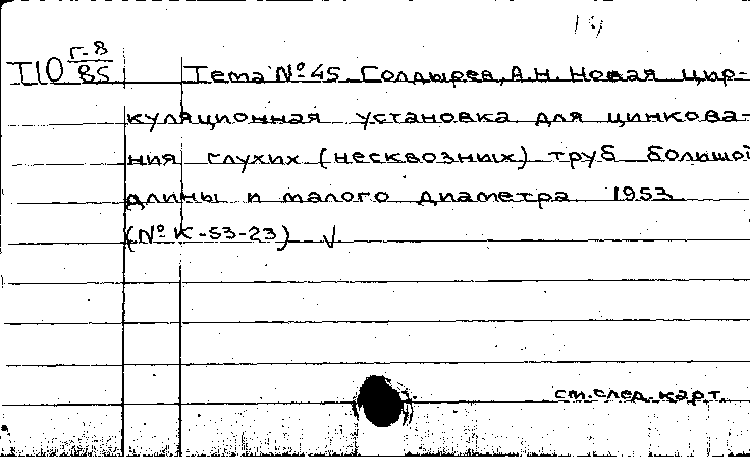 I10 Г-8/85 Тема №45. Голдырев, А.Н. Новая цир-
куляционная установка для цинкова-
ния глухих (несквозных) труб большой
длины и малого диаметра 1953
(№ К-53-23) √.
см. след. карт.